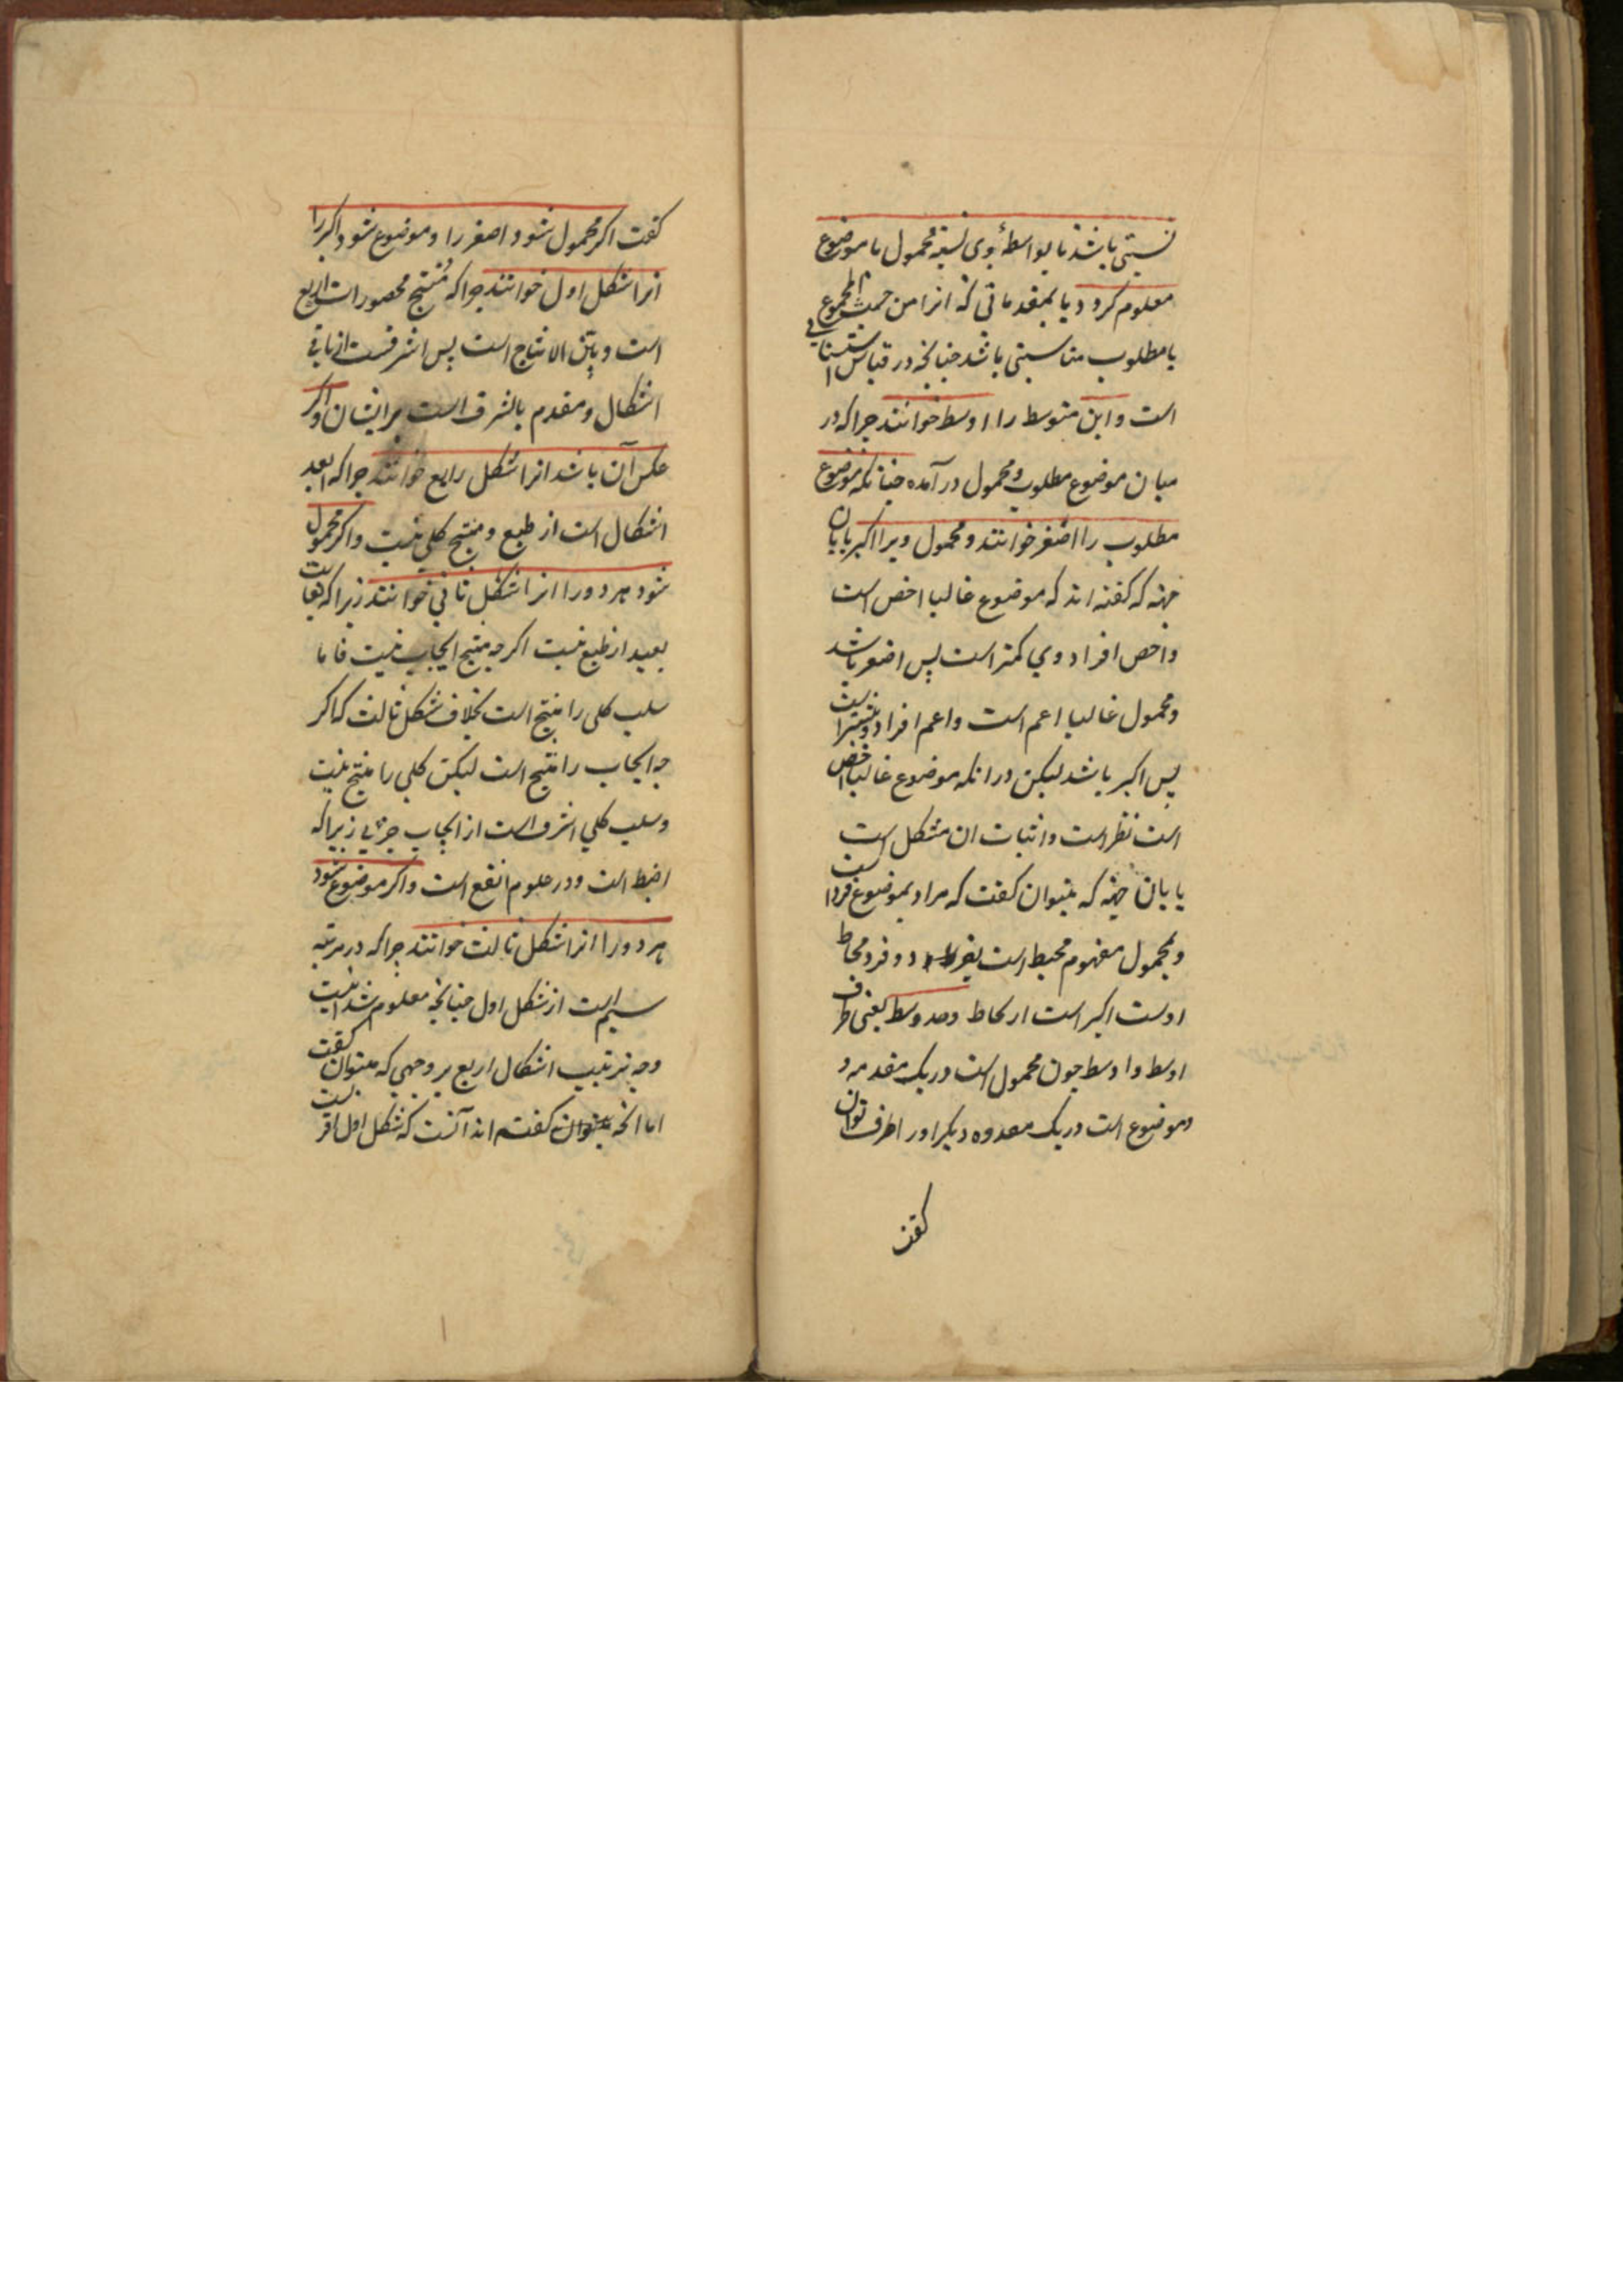 نسبتی باشد تا بواسطهٔ وی نسبت محمول با موضوع
معلوم کردد یا بمقدماتی که انرا من حیث المجموع
با مطلوب مناسبتی باشد جنانجه در قیاس استثنایی
است و این متوسط را اوسط خوانند جرا که در
میان موضوع مطلوب و محمول در آمده جنانکه موضوع
مطلوب را اصغر خوانند و محمول ویرا اکبر بابان
جهته که کفته اند که موضوع غالبا اخص است
و اخص افراد وی کمتر است پس اصغر باشد
و محمول غالبا اعم است و اعم افراد وی بیشتر است
پس اکبر باشد لیکن در انکه موضوع غالبا اخص
است نظر است و اثبات ان مشکل است
یا بان جهته که بتوان کفت که مراد بموضوع فرد است
و بمحمول مفهوم محیط است بفرد و فرد محاط
اوست اکبر است از محاط وحد وسط یعنی طرف
اوسط و اوسط جون محمول است در یک مقدمه و
و موضوع است در یک مقدمه دیکر او را طرف توان
کفت
کفت اکر محمول شود اصغر را و موضوع شود اکبر را
انرا شکل اول خوانند جرا که منتج محصورات اربع
است و بین الانتاج است پس اشرفست از باقی
اشکال و مقدم بالشرف است بر ایشان و اکر
عکس آن باشد انرا شکل رابع خوانند جرا که ابعد
اشکال است از طبع و منتج کلی نیست و اکر محمول
شود هر دو را انرا شکل ثانی خوانند زیرا که بغایت
بعید از طبع نیست اکرجه منتج ایجاب نیست فاما
سلب کلی را منتج است بخلاف شکل ثالث که اکر
جه ایجاب را منتج است لیکن کلی را منتج نیست
و سلب کلی اشرف است از ایجاب جزئی زیرا که
اضبط است و در علوم انفع است و اکر موضوع شود
هر دو را انرا شکل ثالث خوانند جرا که در مرتبه
سیم است از شکل اول جنانجه معلوم شد اینست
وجه ترتیب اشکال اربع بر وجهی که میتوان کفت
اما انجه کفته اند آنست که شکل اول اقربست